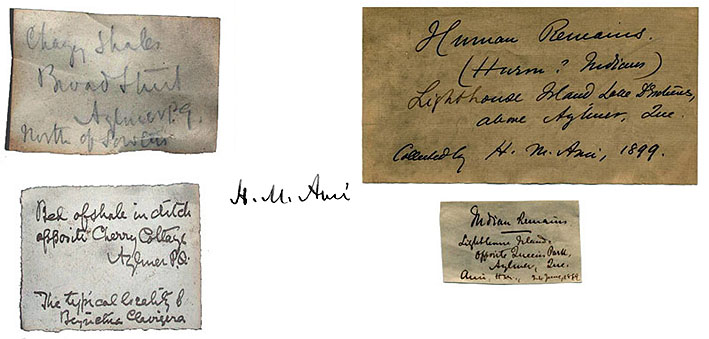 Chazy Shales
Broad Street
Aylmer P.Q.
North of
Bed of shale in ditch
opposite Cherry Cottage
Aylmer P.Q.
The typical locality of
Beyrichia Clavigera
H. M. Ami
Human Remains.
(Huron? Indians)
Lighthouse Island Lake Deschênes,
above Aylmer, Que.
Collected by H. M. Ami, 1899.
Indian Remains
Lighthouse Island.
Opposite Queen's Park,
Aylmer, Que.
Ami, June, 1899